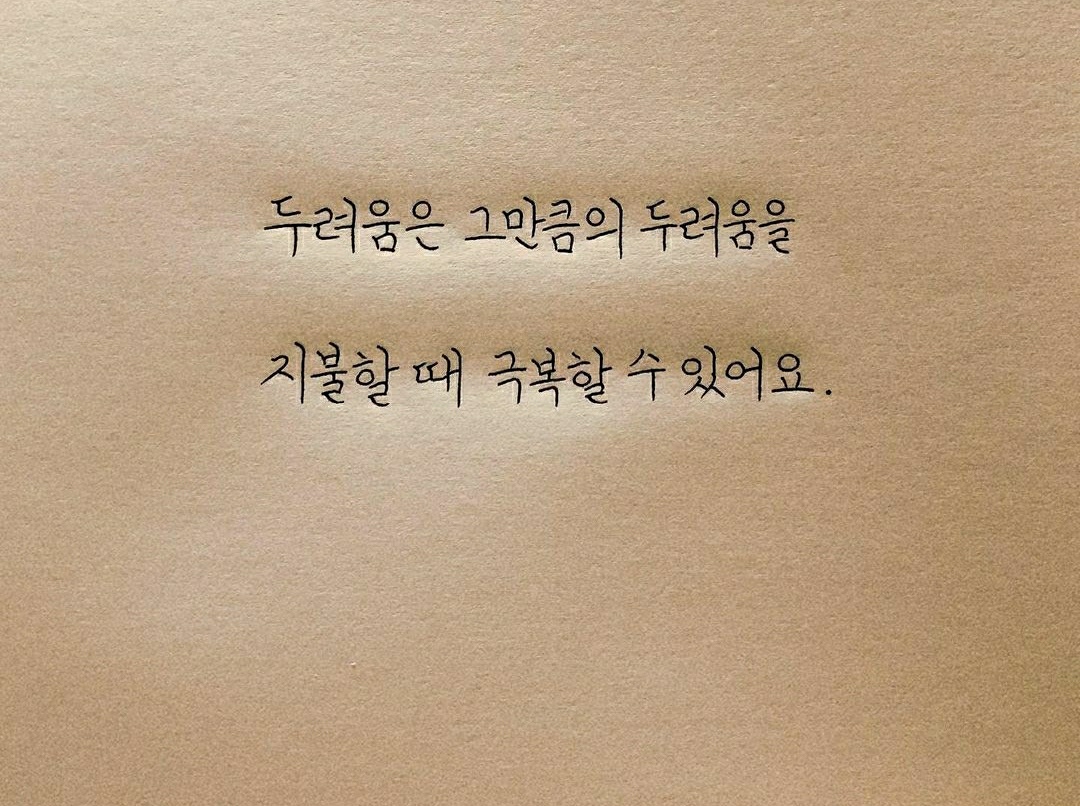 두려움은 그만큼의 두려움을
지불할 때 극복할 수 있어요.